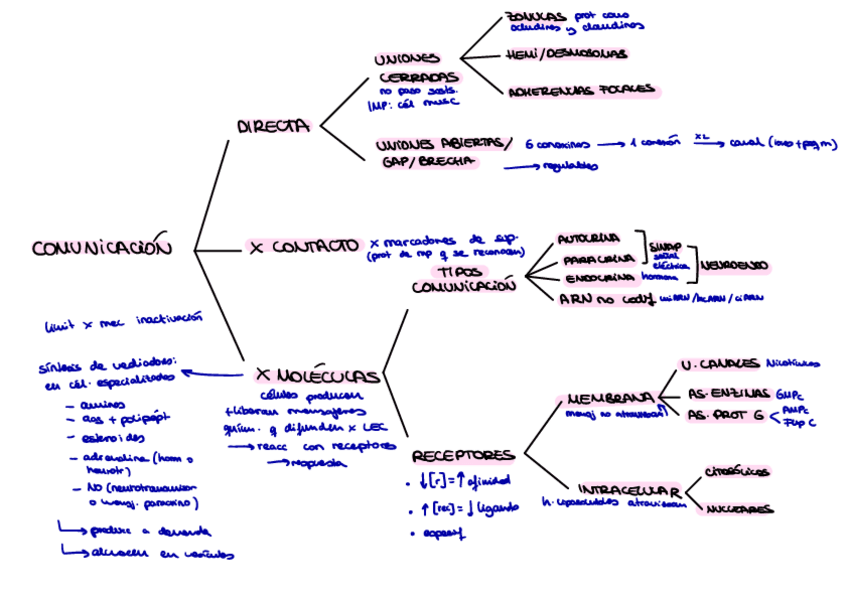 COMUNICACIÓN
DIRECTA
UNIONES
CERRADAS
no paso susts.
IMP: cél musc
ZONULAS prot como
ocludinas y claudinas
HEMI/DESMOSOMAS
ADHERENCIAS FOCALES
UNIONES ABIERTAS/
GAP/BRECHA
6 conexinas → 1 conexón x2→ canal (iono+peq m)
→ regulables
X CONTACTO x marcadores de sup.
(prot de mp q se reconocen)
X MOLÉCULAS
células producen
+ liberan mensajeros
quím. q difunden x LEC
→ reacc con receptores
→ respuesta
limit x mec inactivación
síntesis de mediadores:
en cél. especializadas
- aminos
- aas + polipépt
- esteroides
- adrenalina (horm o
neurotr)
- NO (neurotransmisor
o mensj. paracrino)
↳ produce a demanda
↳ almacen en vesículas
TIPOS
COMUNICACIÓN
AUTOCRINA
PARACRINA
ENDOCRINA hormona
SINAP
señal
eléctrica
NEUROENDO
ARN no codif miARN/lncARN/ciARN
RECEPTORES
• ↓[r] = ↑ afinidad
• ↑[rec] = ↓ ligando
• especif
MEMBRANA
mensj no atraviesan
U. CANALES Nicotínicos
AS. ENZIMAS GMPc
AS. PROT G < AMPc
INTRACELULAR
h. liposolubles atraviesan
CITOSÓLICOS
NUCLEARES